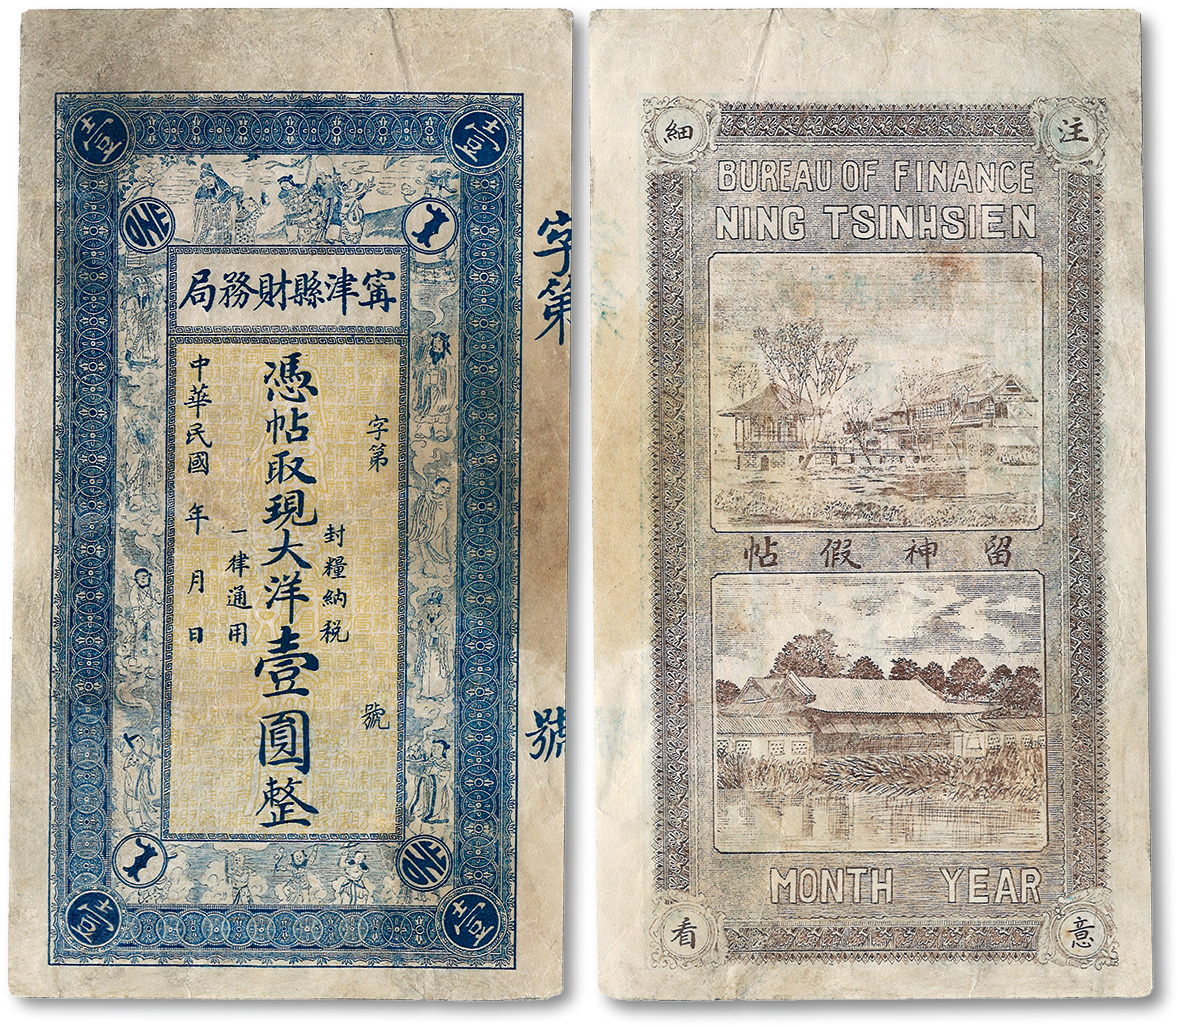 壹
壹
ONE
甯津縣財務局
字第 號
字第 號
封糧納税
憑帖取現大洋壹圓整
一律通用
中華民國 年 月 日
ONE
壹
壹
注
細
BUREAU OF FINANCE
NING TSINHSIEN
留神假帖
MONTH YEAR
意
看